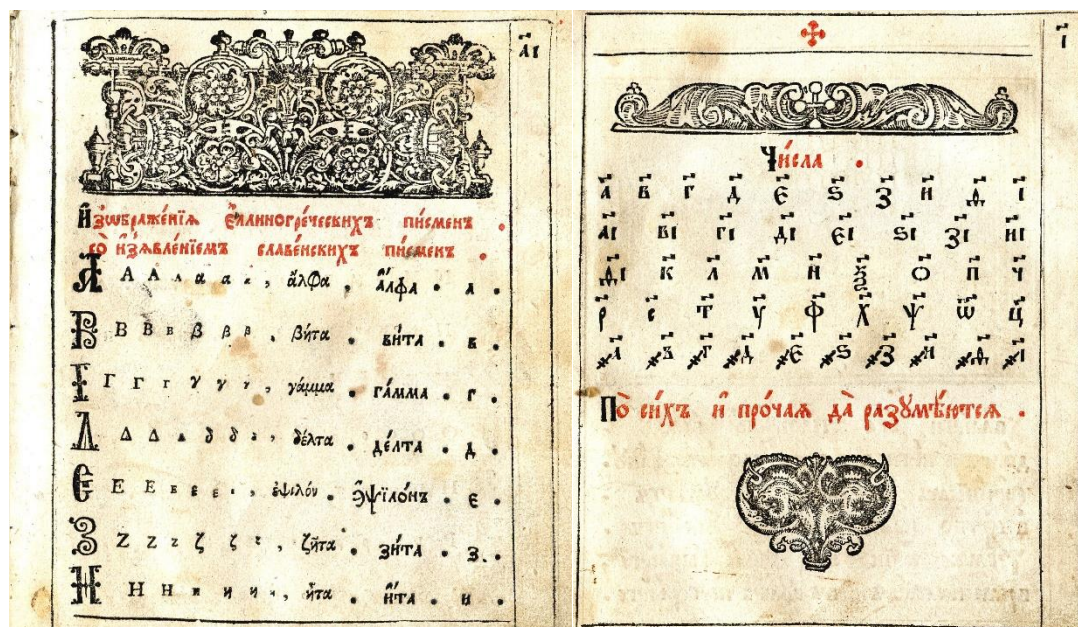 а҃і
И҆зѡбраже́нїѧ є҆ллиногре́ческихъ пи́сменъ .
со и҆з̾ѧвле́нїемъ славе́нскихъ пи́сменъ .
А А А а а а , ἄλφα . а҆́лфа . а .
В В В в β β β , βῆτα . ви́та . в .
Г Г Г г γ γ γ , γάμμα . га́мма . г .
Д Δ Δ δ δ δ , δέλτα . де́лта . д .
Є Ε Ε ε ε ε , ἐψιλόν . э҆ѱїло́нъ . є .
З Ζ Ζ ζ ζ ζ , ζῆτα . зи́та . з .
И Η Η η η η , ἦτα . и҆́та . и .
і҃
Чи́сла .
а҃ в҃ г҃ д҃ є҃ ѕ҃ з҃ и҃ ѳ҃ і҃
а҃і в҃і г҃і д҃і є҃і ѕ҃і з҃і и҃і
ѳ҃і к҃ л҃ м҃ н҃ ѯ҃ о҃ п҃ ч҃
р҃ с҃ т҃ у҃ ф҃ х҃ ѱ҃ ѿ҃ ц҃
҂а҃ ҂в҃ ҂г҃ ҂д҃ ҂є҃ ҂ѕ҃ ҂з҃ ҂и҃ ҂ѳ҃ ҂і҃
По си́хъ и҆ про́чаѧ да̀ разꙋмѣ́ютсѧ .